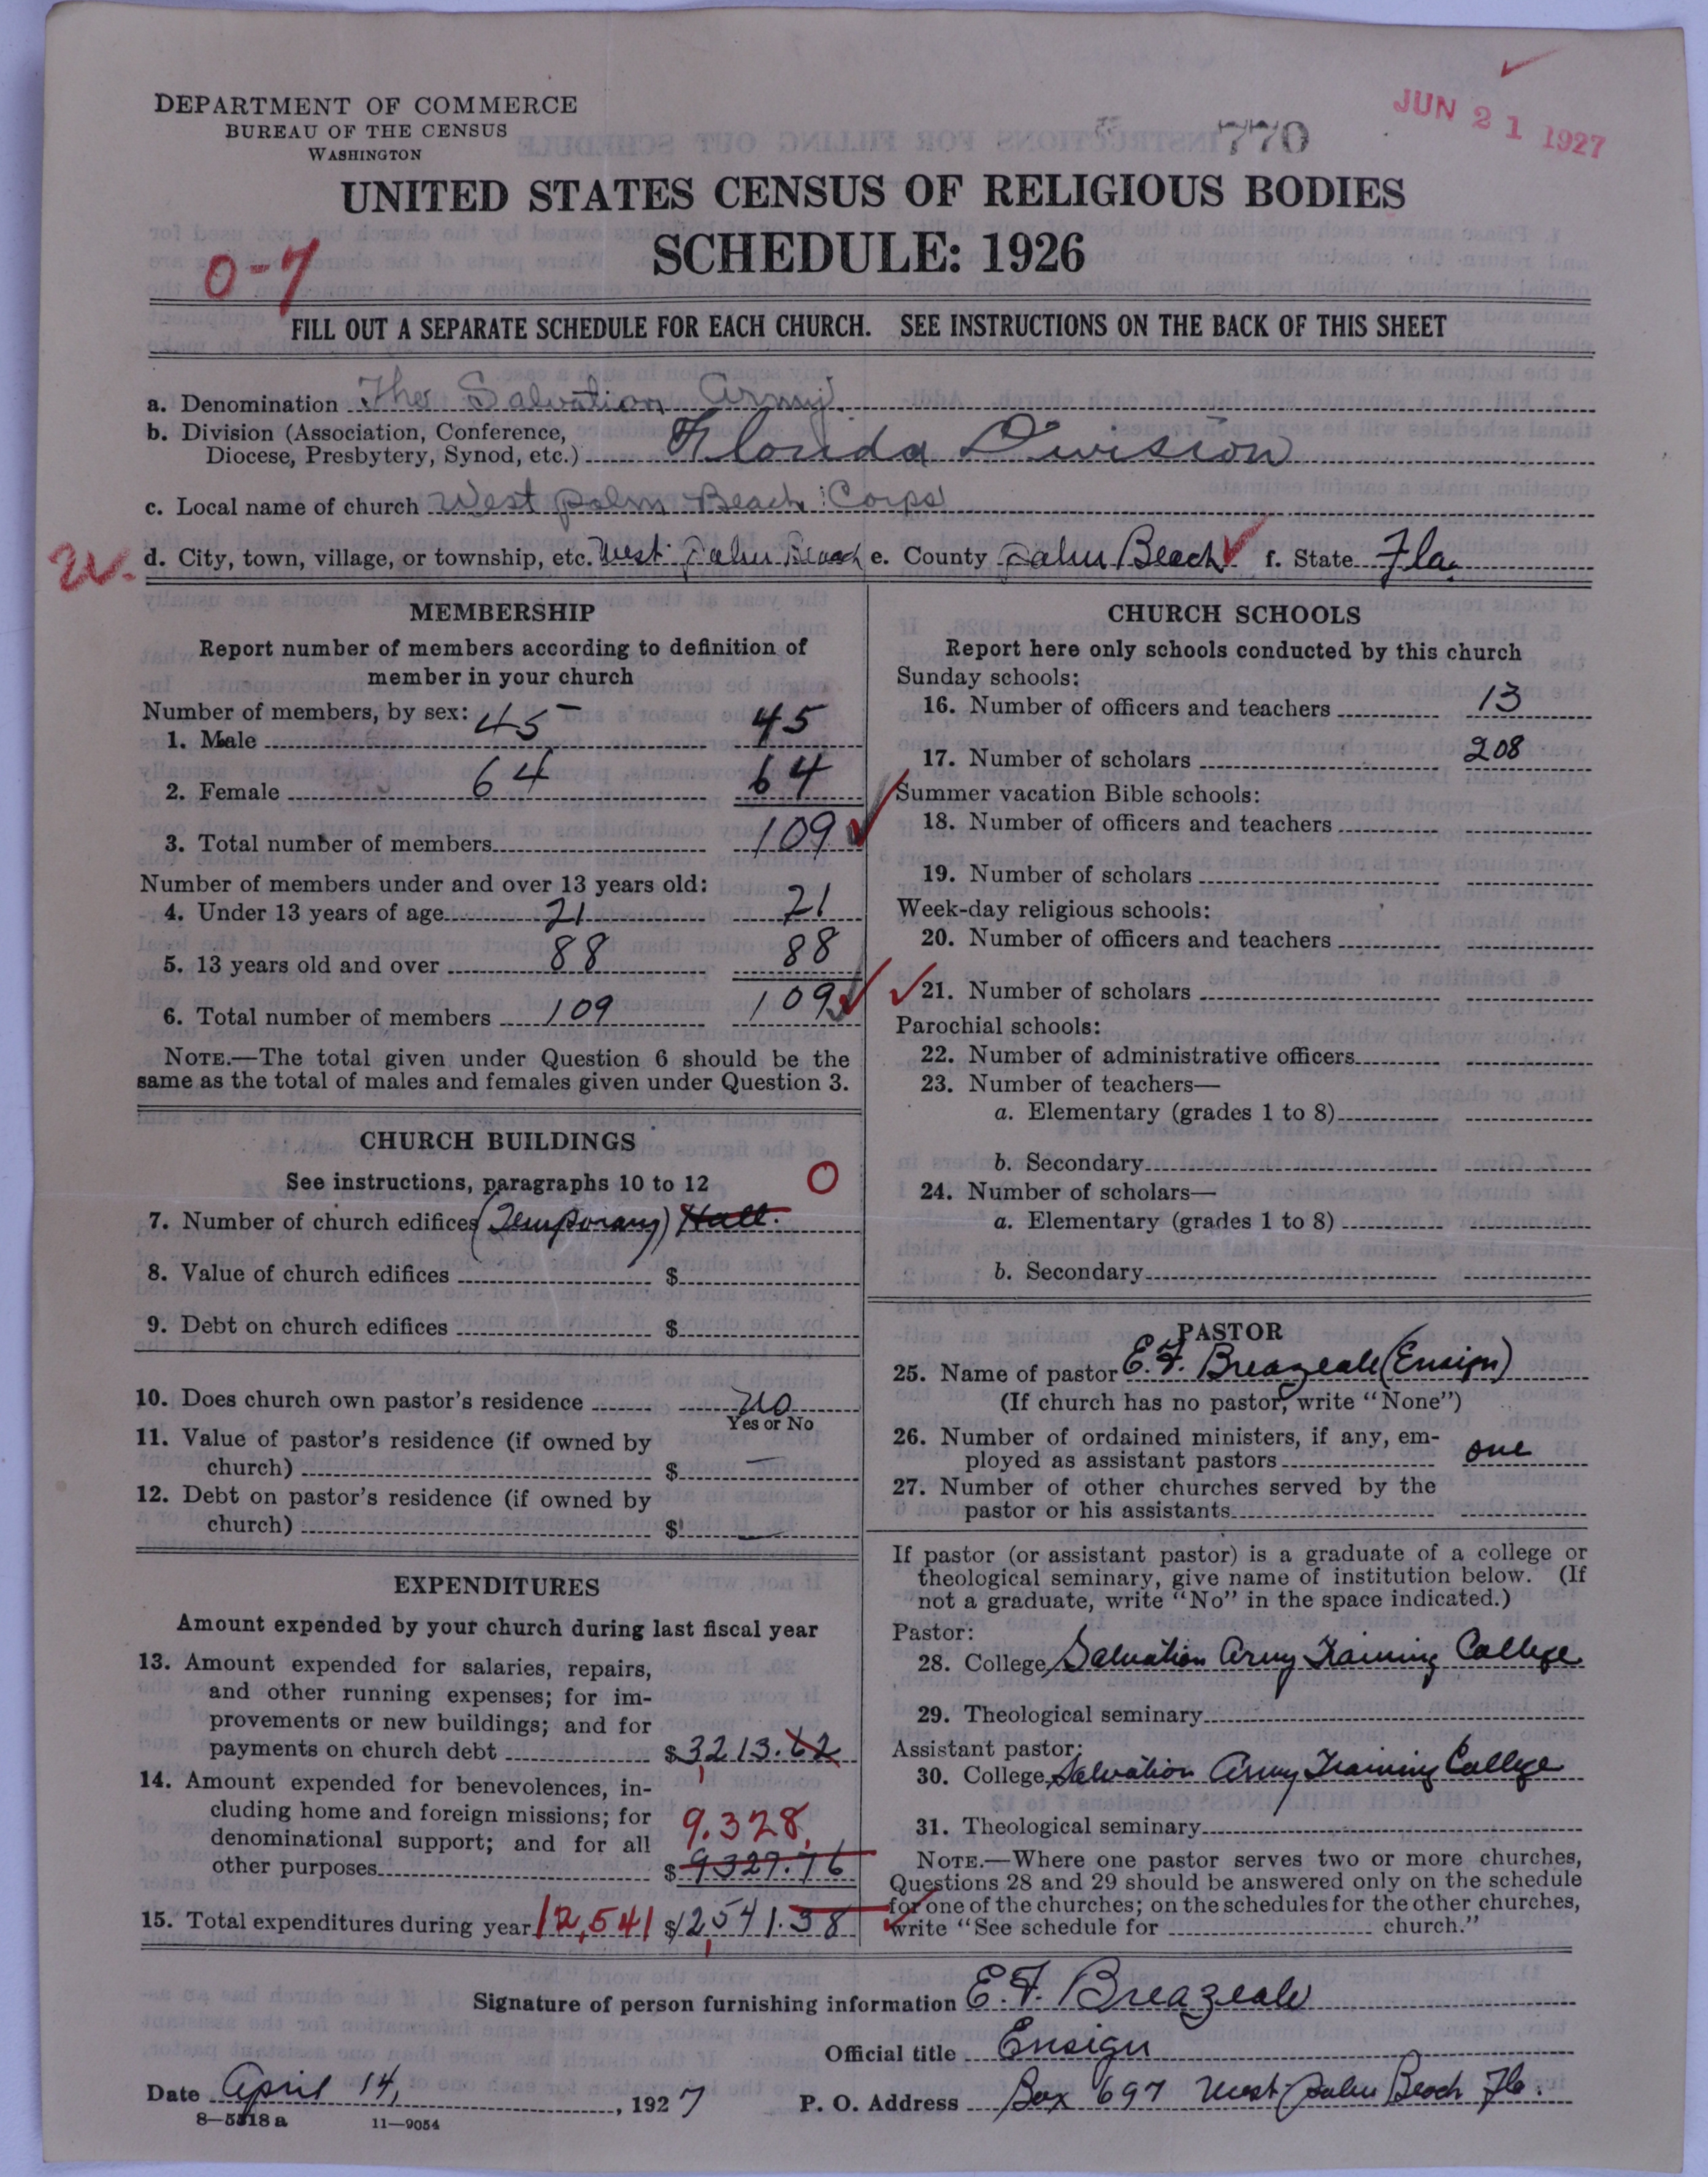 DEPARTMENT OF COMMERCE
BUREAU OF THE CENSUS
WASHINGTON
770
JUN 21 1927
UNITED STATES CENSUS OF RELIGIOUS BODIES
SCHEDULE: 1926
0-7
FILL OUT A SEPARATE SCHEDULE FOR EACH CHURCH. SEE INSTRUCTIONS ON THE BACK OF THIS SHEET
a. Denomination The Salvation Army
b. Division (Association, Conference,
Diocese, Presbytery, Synod, etc.) Florida Division
c. Local name of church West Palm Beach Corps
d. City, town, village, or township, etc. West Palm Beach e. County Palm Beach f. State Fla.
MEMBERSHIP
Report number of members according to definition of
member in your church
Number of members, by sex:
1. Male 45 45
2. Female 64 64
3. Total number of members 109
Number of members under and over 13 years old:
4. Under 13 years of age 21 21
5. 13 years old and over 88 88
6. Total number of members 109 109
NOTE.—The total given under Question 6 should be the
same as the total of males and females given under Question 3.
CHURCH BUILDINGS
See instructions, paragraphs 10 to 12 0
7. Number of church edifices (Temporary) Hall.
8. Value of church edifices $
9. Debt on church edifices $
10. Does church own pastor's residence No
Yes or No
11. Value of pastor's residence (if owned by
church) $ —
12. Debt on pastor's residence (if owned by
church) $ —
EXPENDITURES
Amount expended by your church during last fiscal year
13. Amount expended for salaries, repairs,
and other running expenses; for im-
provements or new buildings; and for
payments on church debt $3,213.62
14. Amount expended for benevolences, in-
cluding home and foreign missions; for
denominational support; and for all
other purposes 9,328. $9327.76
15. Total expenditures during year 12,541 $12,541.38
CHURCH SCHOOLS
Report here only schools conducted by this church
Sunday schools:
16. Number of officers and teachers 13
17. Number of scholars 208
Summer vacation Bible schools:
18. Number of officers and teachers
19. Number of scholars
Week-day religious schools:
20. Number of officers and teachers
21. Number of scholars
Parochial schools:
22. Number of administrative officers
23. Number of teachers—
a. Elementary (grades 1 to 8)
b. Secondary
24. Number of scholars—
a. Elementary (grades 1 to 8)
b. Secondary
PASTOR
25. Name of pastor E. F. Breazeale (Ensign)
(If church has no pastor, write "None")
26. Number of ordained ministers, if any, em-
ployed as assistant pastors one
27. Number of other churches served by the
pastor or his assistants
If pastor (or assistant pastor) is a graduate of a college or
theological seminary, give name of institution below. (If
not a graduate, write "No" in the space indicated.)
Pastor:
28. College Salvation Army Training College
29. Theological seminary
Assistant pastor:
30. College Salvation Army Training College
31. Theological seminary
NOTE.—Where one pastor serves two or more churches,
Questions 28 and 29 should be answered only on the schedule
for one of the churches; on the schedules for the other churches,
write "See schedule for church."
Signature of person furnishing information E. F. Breazeale
Official title Ensign
Date April 14, 1927 P. O. Address Box 697 West Palm Beach Fla.
8—5518 a 11—9054